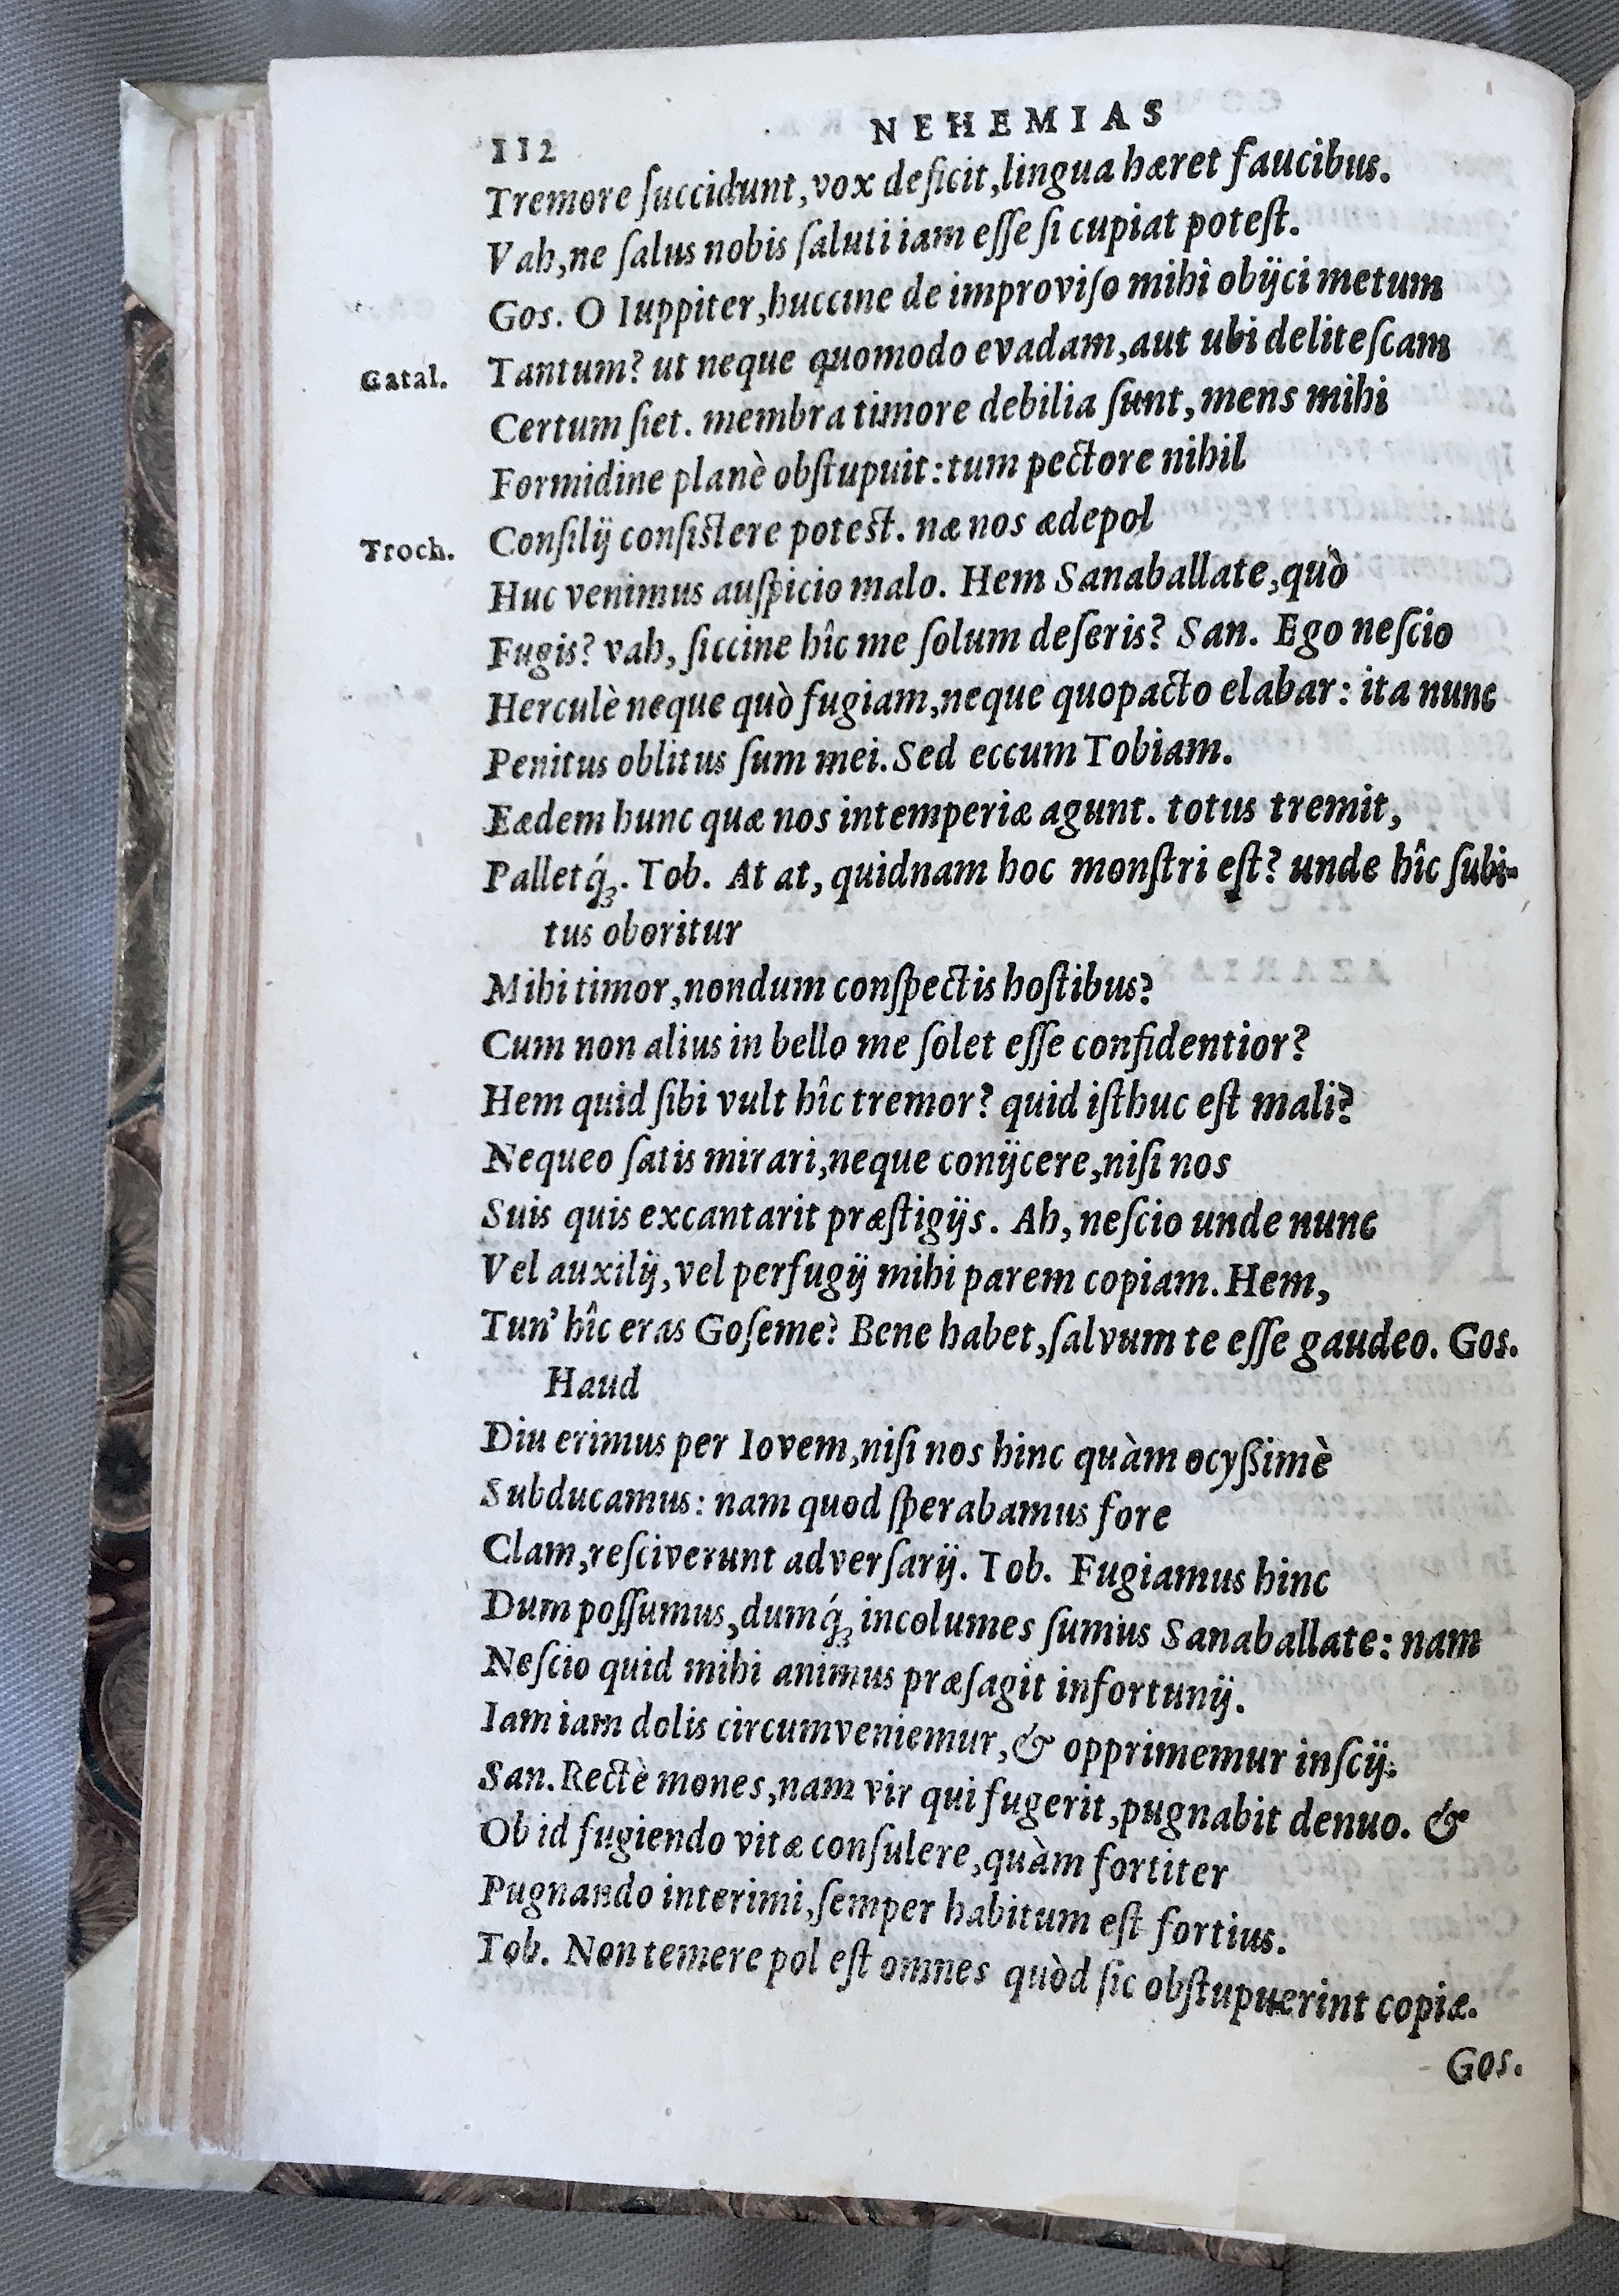 112 NEHEMIAS
Tremore ſuccidunt, vox deficit, lingua hæret faucibus.
Vah, ne ſalus nobis ſaluti iam eſſe ſi cupiat poteſt.
Gos. O Iuppiter, huccine de improviſo mihi obijci metum
Gatal. Tantum? ut neque quomodo evadam, aut ubi deliteſcam
Certum ſiet. membra timore debilia ſunt, mens mihi
Formidine planè obſtupuit: tum pectore nihil
Conſilij conſiſtere poteſt. næ nos ædepol
Troch. Huc venimus auſpicio malo. Hem Sanaballate, quò
Fugis? vah, ſiccine hîc me ſolum deſeris? San. Ego neſcio
Herculè neque quò fugiam, neque quopacto elabar: ita nunc
Penitus oblitus ſum mei. Sed eccum Tobiam.
Eædem hunc quæ nos intemperiæ agunt. totus tremit,
Palletq́ꝫ. Tob. At at, quidnam hoc monſtri eſt? unde hîc ſubi-
tus oboritur
Mihi timor, nondum conſpectis hoſtibus?
Cum non alius in bello me ſolet eſſe confidentior?
Hem quid ſibi vult hîc tremor? quid iſthuc eſt mali?
Nequeo ſatis mirari, neque conijcere, niſi nos
Suis quis excantarit præſtigijs. Ah, neſcio unde nunc
Vel auxilij, vel perfugij mihi parem copiam. Hem,
Tun' hîc eras Goſeme? Bene habet, ſalvum te eſſe gaudeo. Gos.
Haud
Diu erimus per Iovem, niſi nos hinc quàm ocyßimè
Subducamus: nam quod ſperabamus fore
Clam, reſciverunt adverſarij. Tob. Fugiamus hinc
Dum poſſumus, dumq́ꝫ incolumes ſumus Sanaballate: nam
Neſcio quid mihi animus præſagit infortunij.
Iam iam dolis circumveniemur, & opprimemur inſcij.
San. Rectè mones, nam vir qui fugerit, pugnabit denuo. &
Ob id fugiendo vitæ conſulere, quàm fortiter
Pugnando interimi, ſemper habitum eſt fortius.
Tob. Non temere pol eſt omnes quòd ſic obſtupuerint copiæ.
Gos.